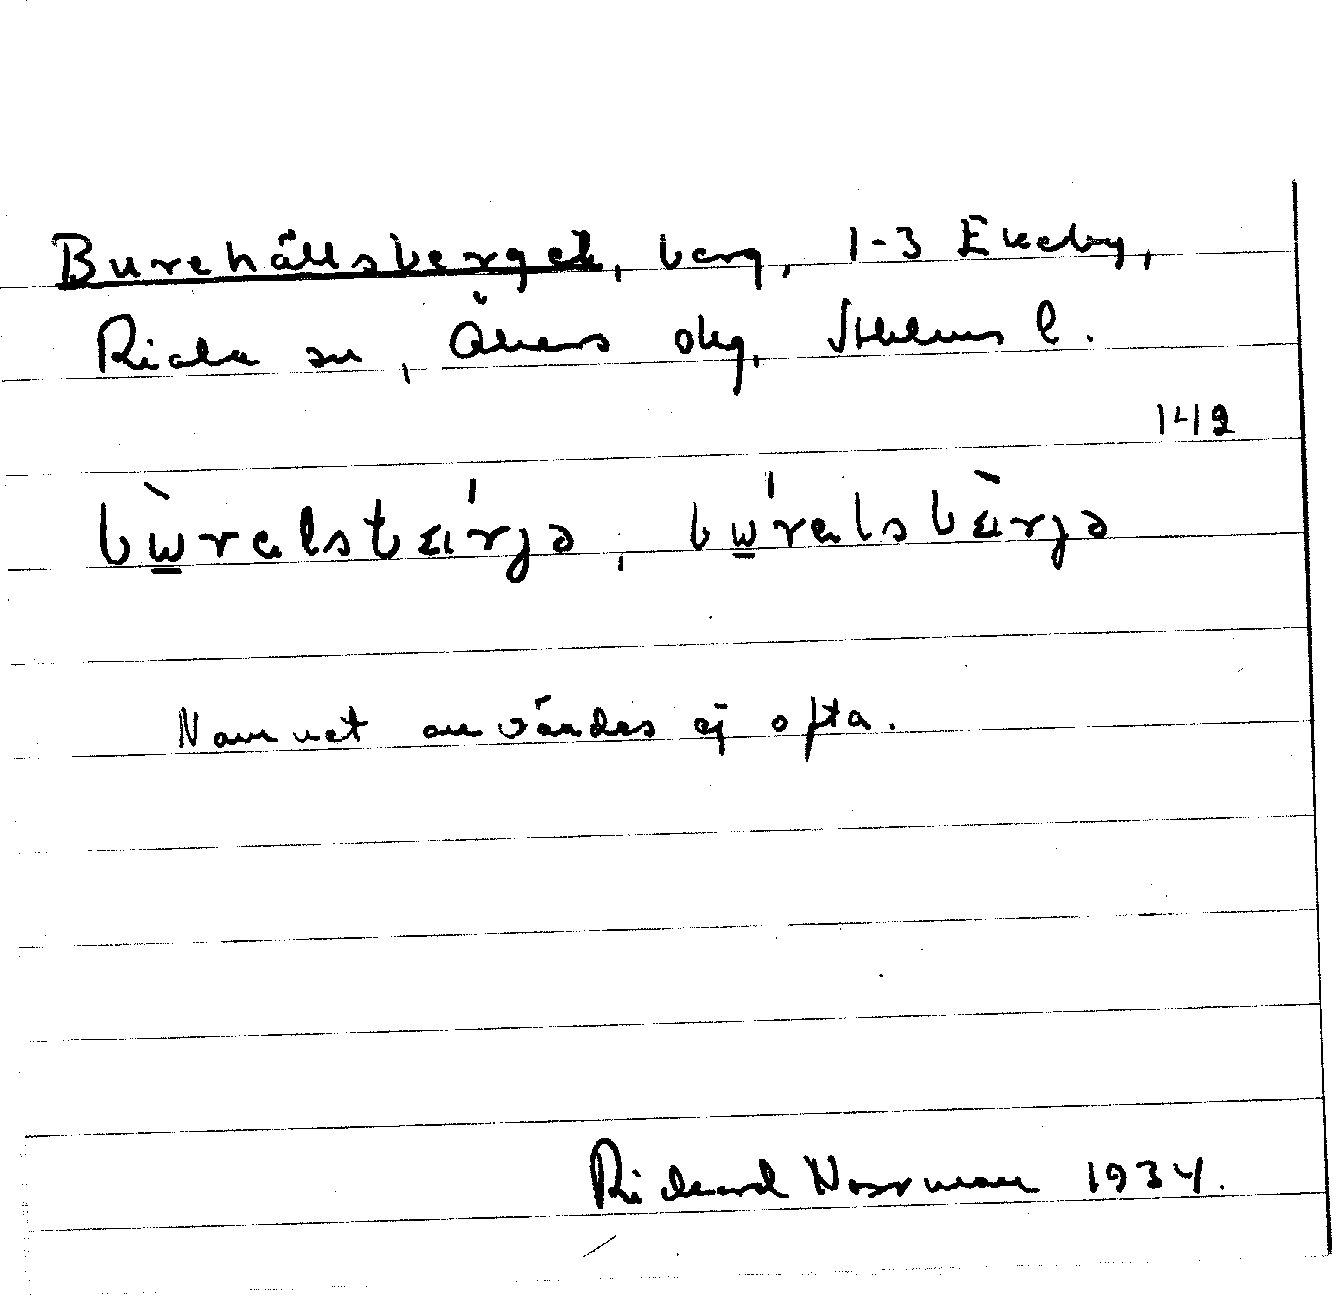 Burehällsberget, berg, 1-3 Ekeby,
Riala sn, Åkers skg, Sthlms l.
142
bὼralsbǽrjə, bώralsbæ̀rjə
Namnet användes ej ofta.
Richard Norrman 1934.